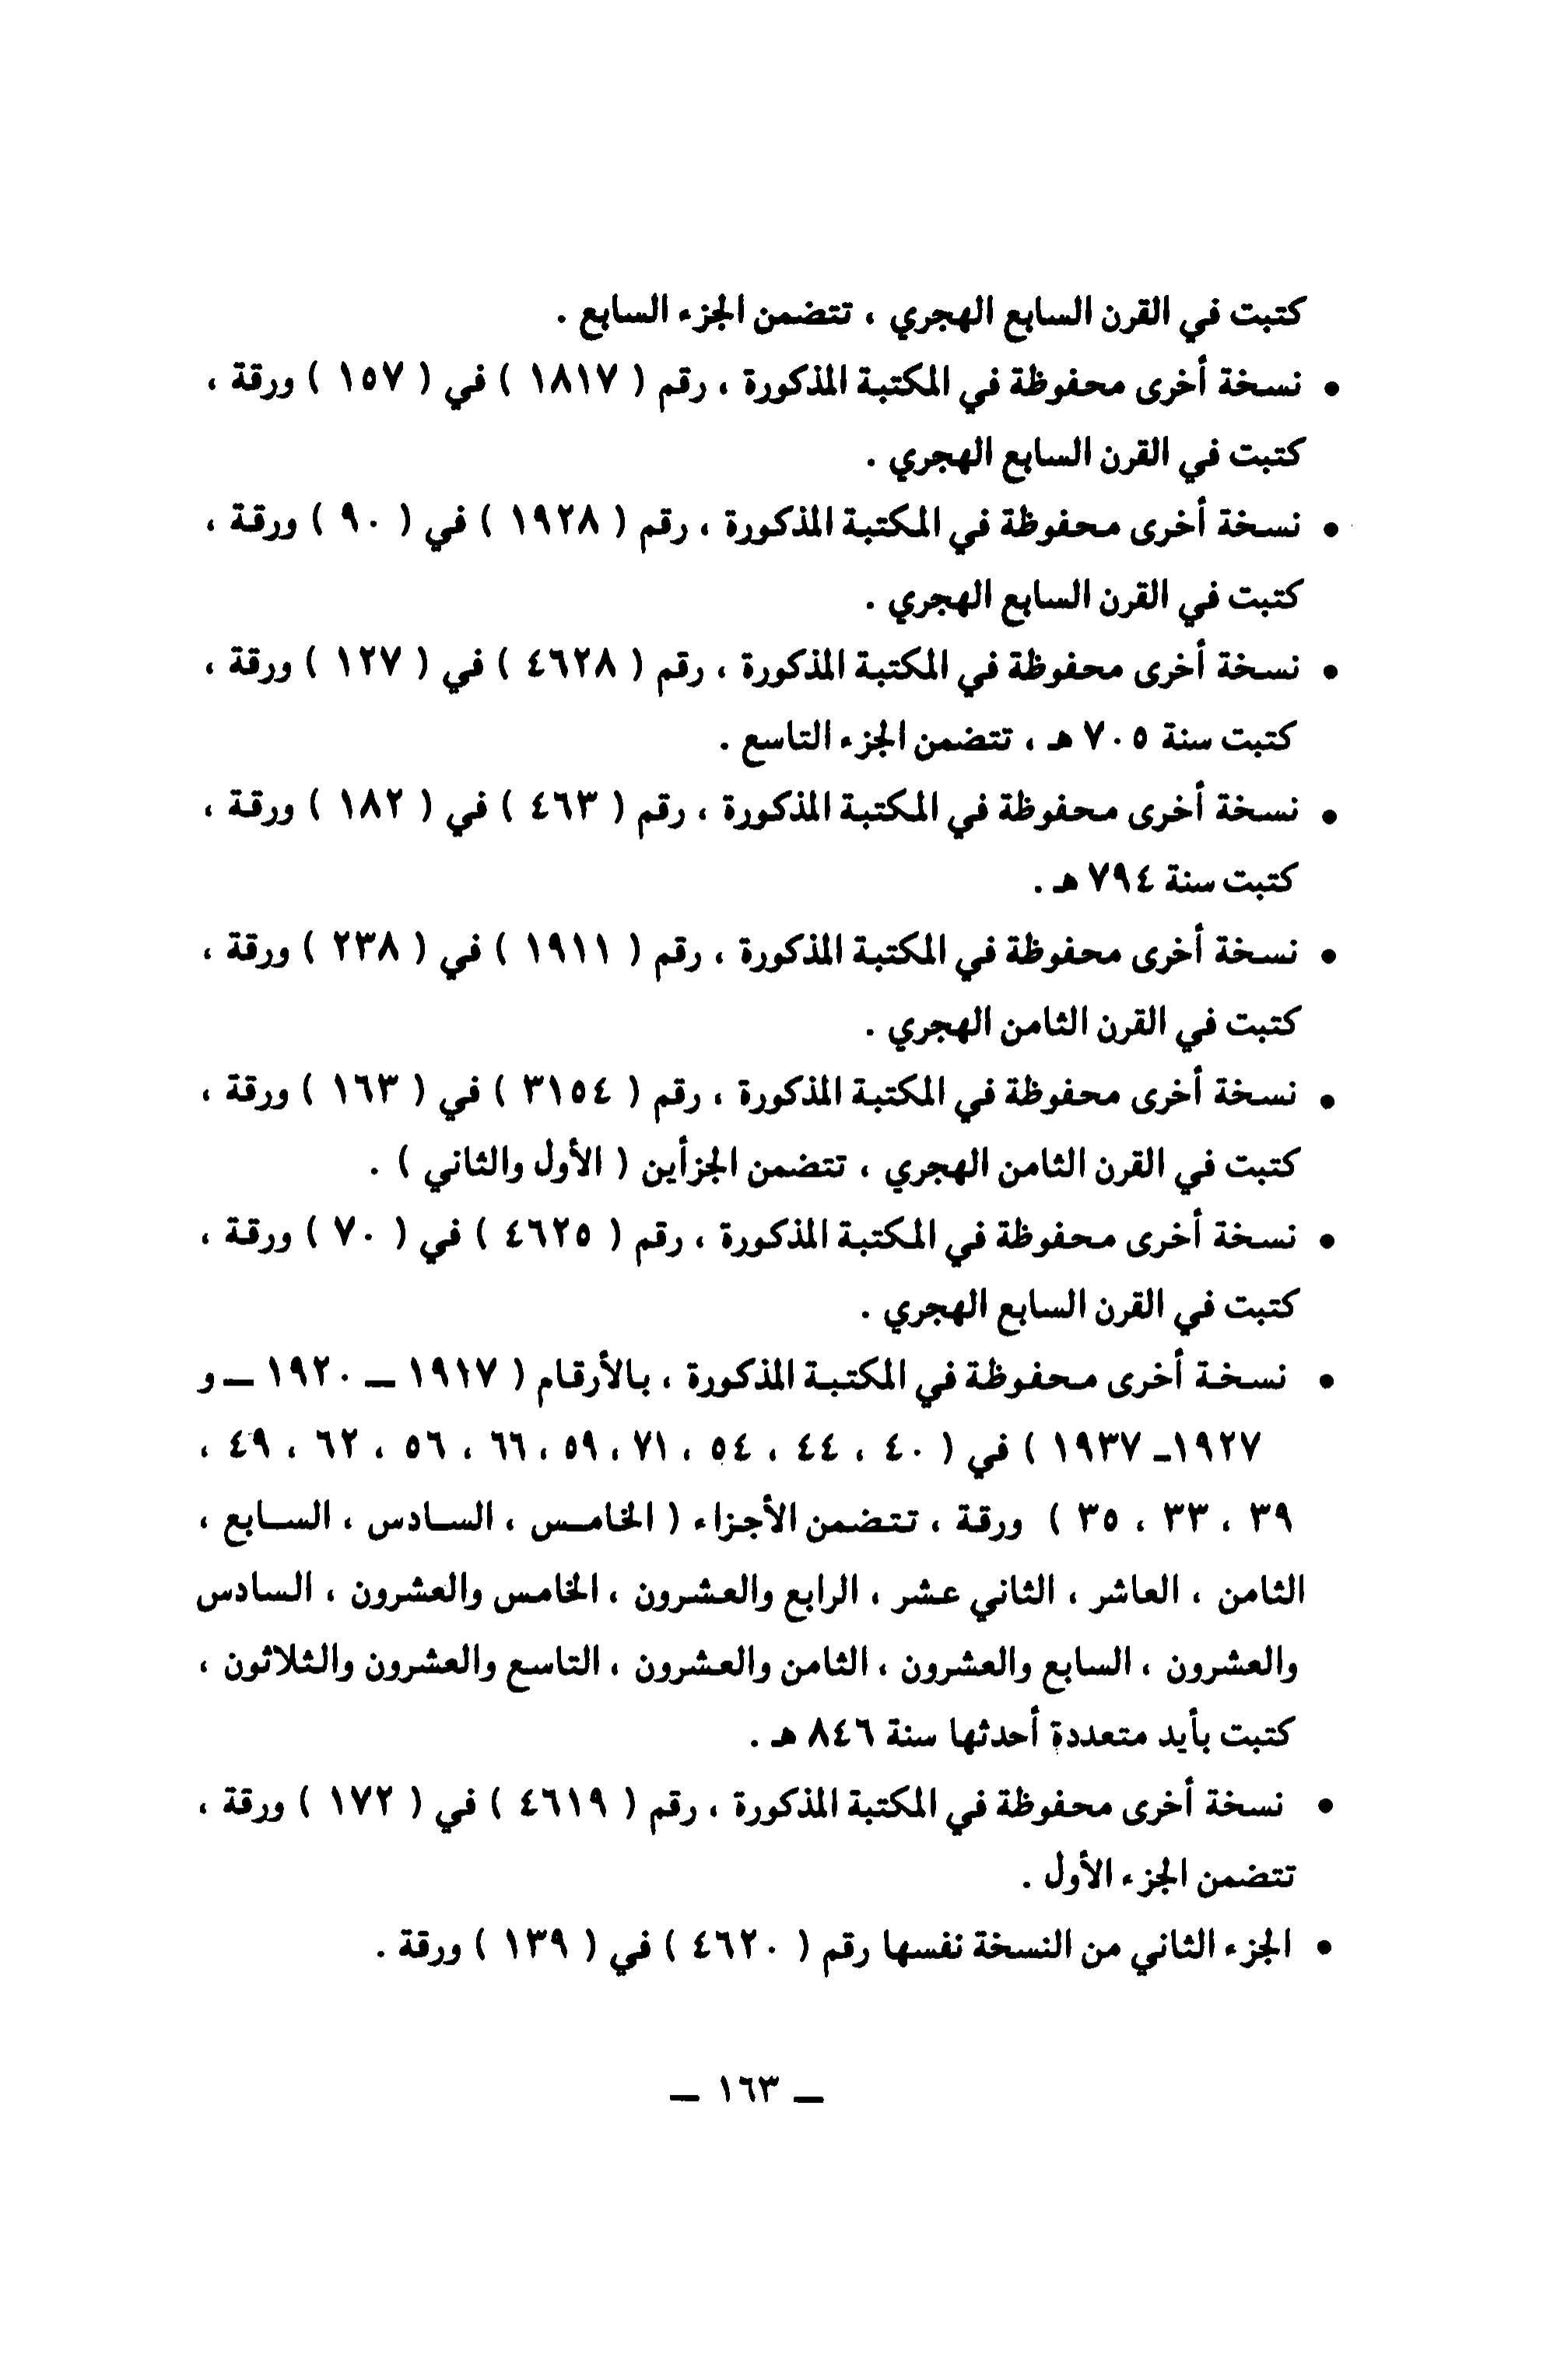 كتبت في القرن السابع الهجري ، تتضمن الجزء السابع .
• نسخة أخرى محفوظة في المكتبة المذكورة ، رقم ( ١٨١٧ ) في ( ١٥٧ ) ورقة ،
كتبت في القرن السابع الهجري .
• نسخة أخرى محفوظة في المكتبة المذكورة ، رقم ( ١٩٢٨ ) في ( ٩٠ ) ورقة ،
كتبت في القرن السابع الهجري .
• نسخة أخرى محفوظة في المكتبة المذكورة ، رقم ( ٤٦٢٨ ) في ( ١٢٧ ) ورقة ،
كتبت سنة ٧٠٥ هـ ، تتضمن الجزء التاسع .
• نسخة أخرى محفوظة في المكتبة المذكورة ، رقم ( ٤٦٣ ) في ( ١٨٢ ) ورقة ،
كتبت سنة ٧٩٤ هـ .
• نسخة أخرى محفوظة في المكتبة المذكورة ، رقم ( ١٩١١ ) في ( ٢٣٨ ) ورقة ،
كتبت في القرن الثامن الهجري .
• نسخة أخرى محفوظة في المكتبة المذكورة ، رقم ( ٣١٥٤ ) في ( ١٦٣ ) ورقة ،
كتبت في القرن الثامن الهجري ، تتضمن الجزأين ( الأول والثاني ) .
• نسخة أخرى محفوظة في المكتبة المذكورة ، رقم ( ٤٦٢٥ ) في ( ٧٠ ) ورقة ،
كتبت في القرن السابع الهجري .
• نسخة أخرى محفوظة في المكتبة المذكورة ، بالأرقام ( ١٩١٧ ــ ١٩٢٠ ــ و
١٩٢٧ـ ١٩٣٧ ) في ( ٤٠ ، ٤٤ ، ٥٤ ، ٧١ ، ٥٩ ، ٦٦ ، ٥٦ ، ٦٢ ، ٤٩ ،
٣٩ ، ٣٣ ، ٣٥ ) ورقة ، تتضمن الأجزاء ( الخامس ، السادس ، السابع ،
الثامن ، العاشر ، الثاني عشر ، الرابع والعشرون ، الخامس والعشرون ، السادس
والعشرون ، السابع والعشرون ، الثامن والعشرون ، التاسع والعشرون والثلاثون ،
كتبت بأيد متعددة أحدثها سنة ٨٤٦ هـ .
• نسخة أخرى محفوظة في المكتبة المذكورة ، رقم ( ٤٦١٩ ) في ( ١٧٢ ) ورقة ،
تتضمن الجزء الأول .
• الجزء الثاني من النسخة نفسها رقم ( ٤٦٢٠ ) في ( ١٣٩ ) ورقة .
ــ ١٦٣ ــ